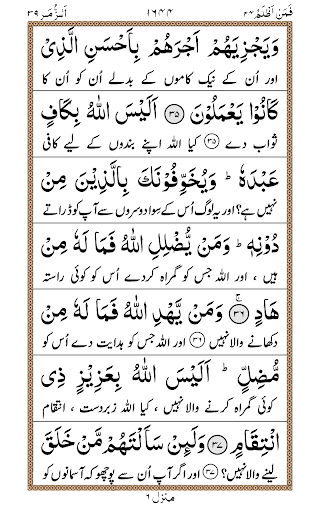 فَمَنۡ اَظۡلَمُ ۲۴ ۱۶۴۴ اَلزُّمَر ۳۹
وَيَجۡزِيَهُمۡ اَجۡرَهُمۡ بِاَحۡسَنِ الَّذِىۡ
اور اُن کے نیک کاموں کے بدلے اُن کو اُن کا
كَانُوۡا يَعۡمَلُوۡنَ ﴿۳۵﴾ اَلَيۡسَ اللّٰهُ بِكَافٍ
ثواب دے ﴿۳۵﴾ کیا اللہ اپنے بندوں کے لیے کافی
عَبۡدَهٗ ؕ وَيُخَوِّفُوۡنَكَ بِالَّذِيۡنَ مِنۡ
نہیں ہے؟ اور یہ لوگ اُس کے سوا دوسروں سے آپ کو ڈراتے
دُوۡنِهٖ ؕ وَمَنۡ يُّضۡلِلِ اللّٰهُ فَمَا لَهٗ مِنۡ
ہیں ، اور اللہ جس کو گمراہ کردے اُس کو کوئی راستہ
هَادٍ ۚ ﴿۳۶﴾ وَمَنۡ يَّهۡدِ اللّٰهُ فَمَا لَهٗ مِنۡ
دکھانے والا نہیں ﴿۳۶﴾ اور اللہ جس کو ہدایت دے اُس کو
مُّضِلٍّ ؕ اَلَيۡسَ اللّٰهُ بِعَزِيۡزٍ ذِى
کوئی گمراہ کرنے والا نہیں ، کیا اللہ زبردست ، انتقام
انۡتِقَامٍ ﴿۳۷﴾ وَلَئِنۡ سَاَلۡتَهُمۡ مَّنۡ خَلَقَ
لینے والا نہیں؟ ﴿۳۷﴾ اور اگر آپ اُن سے پوچھو کہ آسمانوں کو
منزل ۶